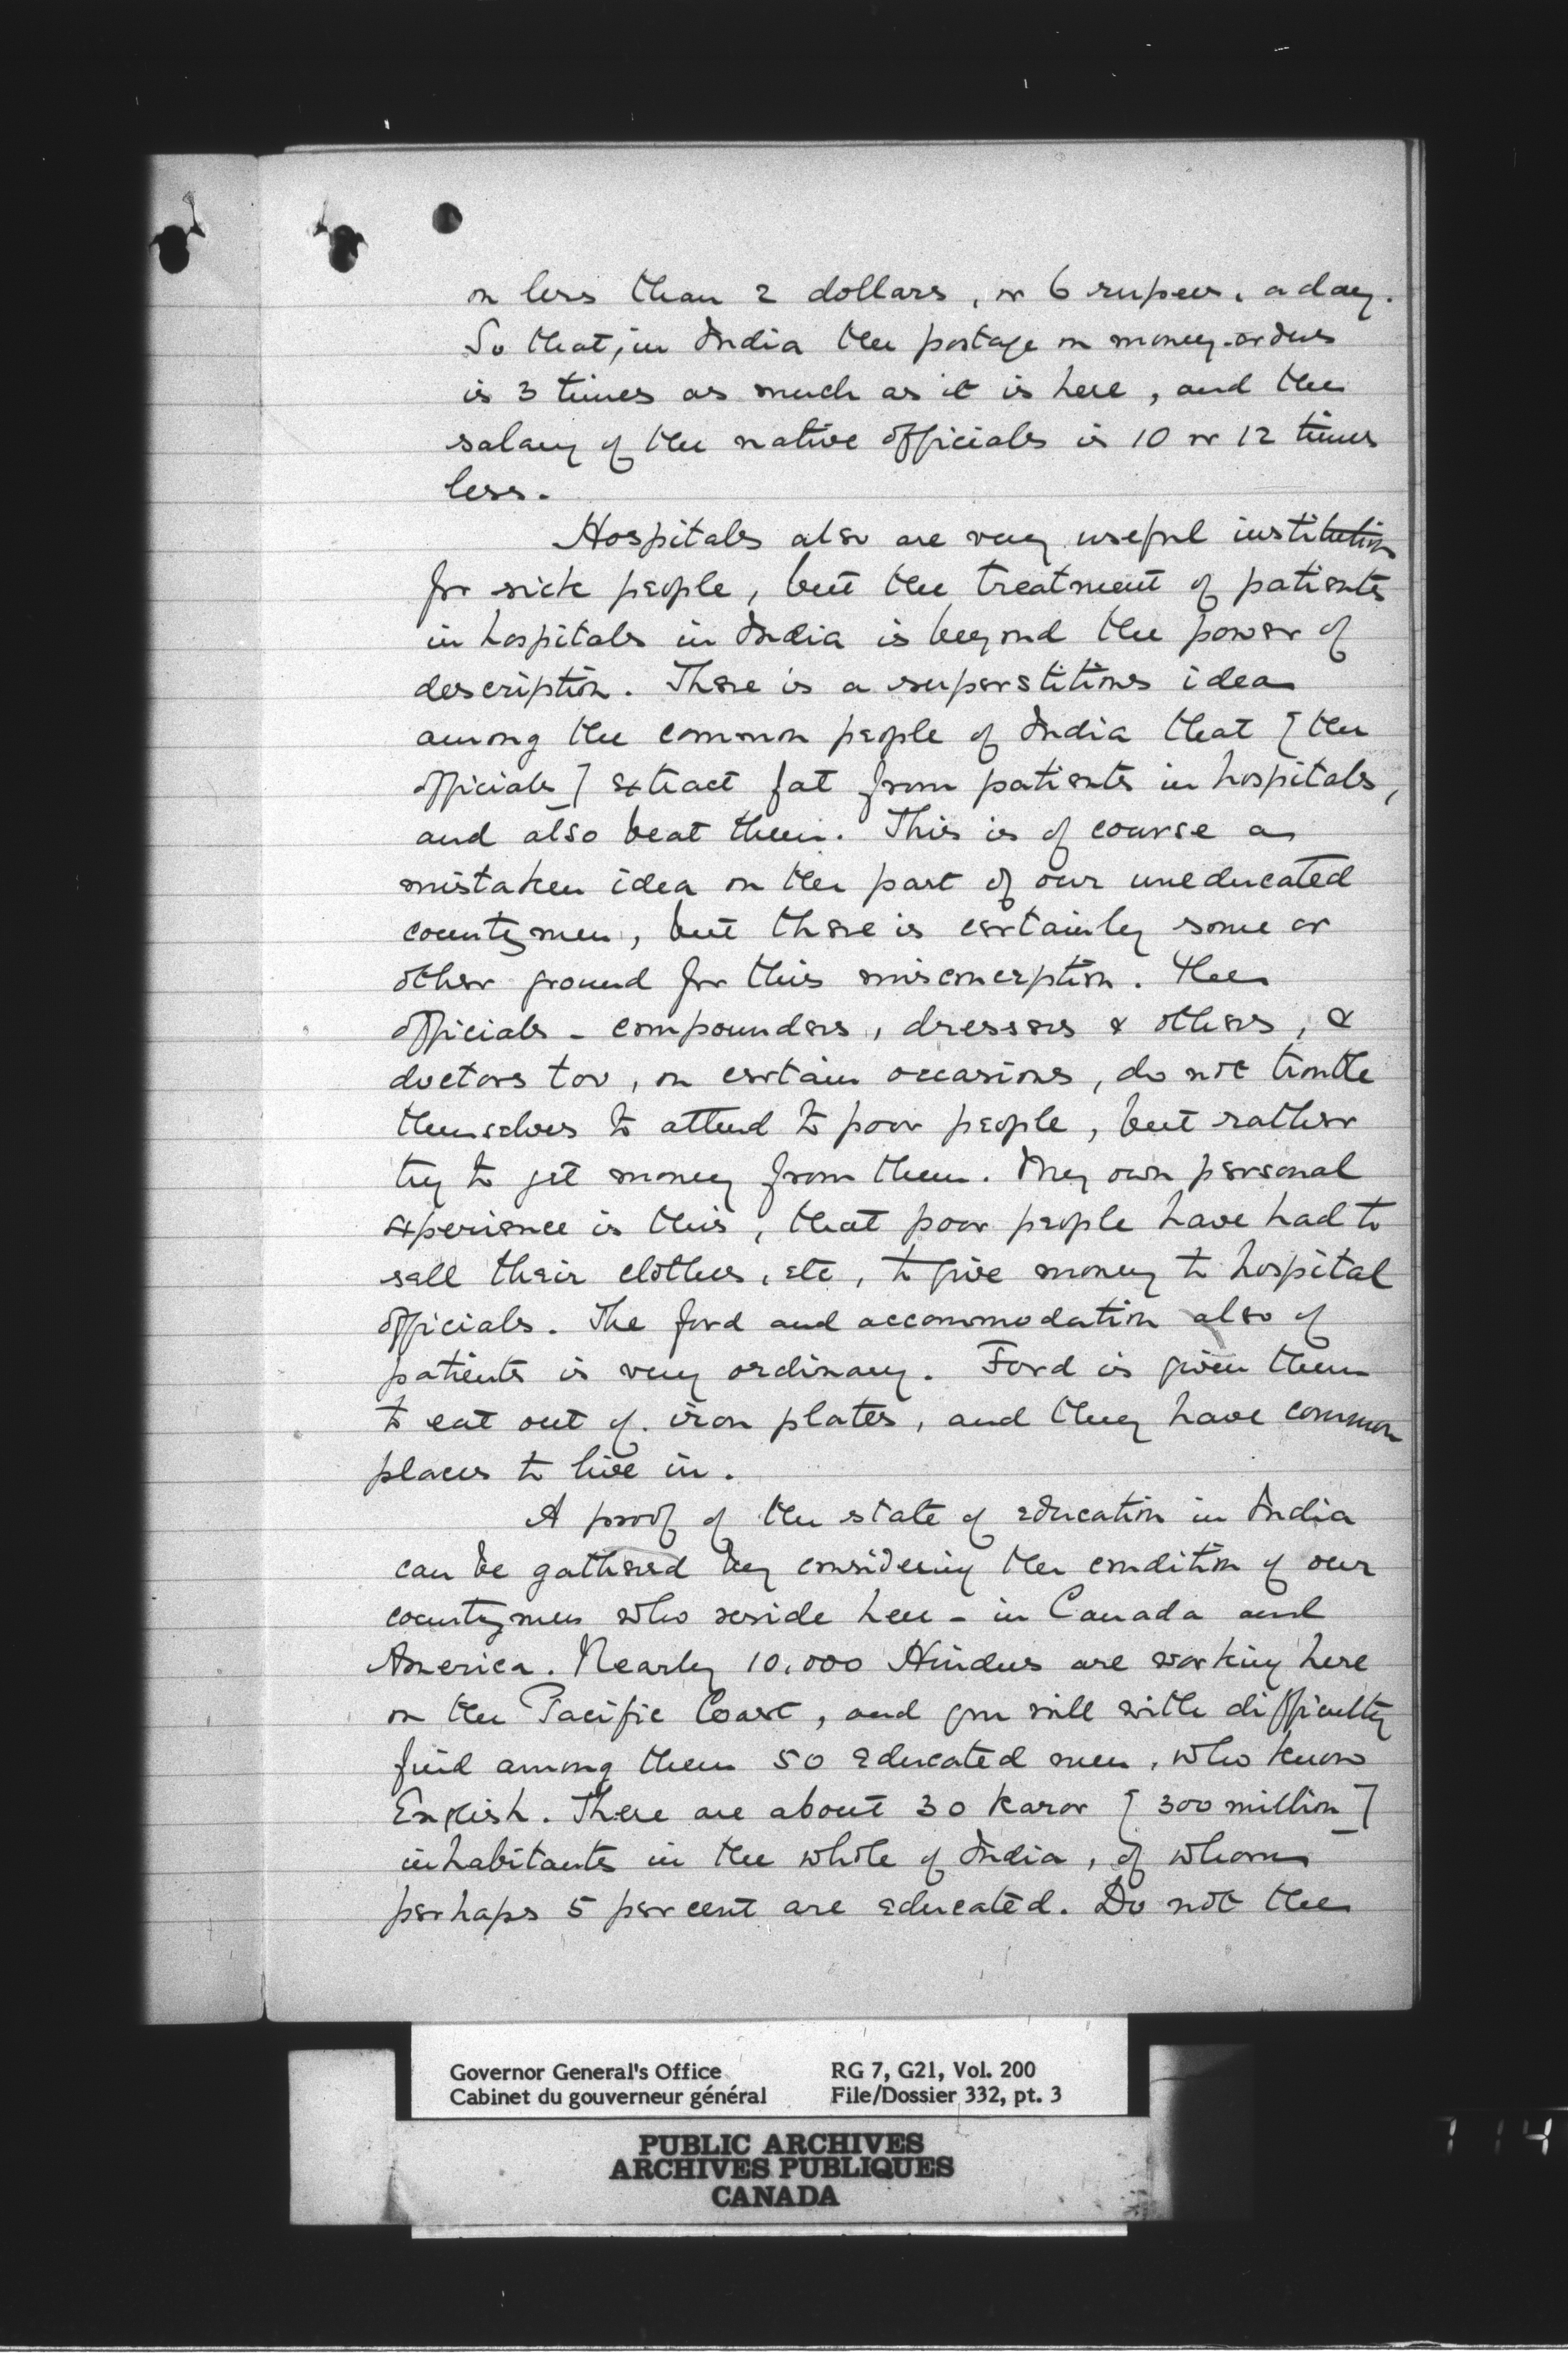 on less than 2 dollars, or 6 rupees, a day.
So that, in India the postage on money-orders
is 3 times as much as it is here, and the
salary of the native officials is 10 or 12 times
less.
Hospitals also are very useful institution
for sick people, but the treatment of patients
in hospitals in India is beyond the power of
description. There is a superstitious idea
among the common people of India that [the
officials] extract fat from patients in hospitals,
and also beat them. This is of course a
mistaken idea on the part of our uneducated
countrymen, but there is certainly some or
other ground for this misconception. The
officials - compounders, dressers & others, &
doctors too, on certain occasions, do not trouble
themselves to attend to poor people, but rather
try to get money from them. My own personal
experience is this, that poor people have had to
sell their clothes, etc, to give money to hospital
officials. The food and accommodation also of
patients is very ordinary. Food is given them
to eat out of iron plates, and they have common
places to live in.
A proof of the state of education in India
can be gathered by considering the condition of our
countrymen who reside here - in Canada and
America. Nearly 10,000 Hindus are working here
on the Pacific Coast, and you will with difficulty
find among them 50 educated men, who know
English. There are about 30 karor [300 million]
inhabitants in the whole of India, of whom
perhaps 5 per cent are educated. Do not the
Governor General's Office RG 7, G21, Vol. 200
Cabinet du gouverneur général File/Dossier 332, pt. 3
PUBLIC ARCHIVES
ARCHIVES PUBLIQUES
CANADA
114